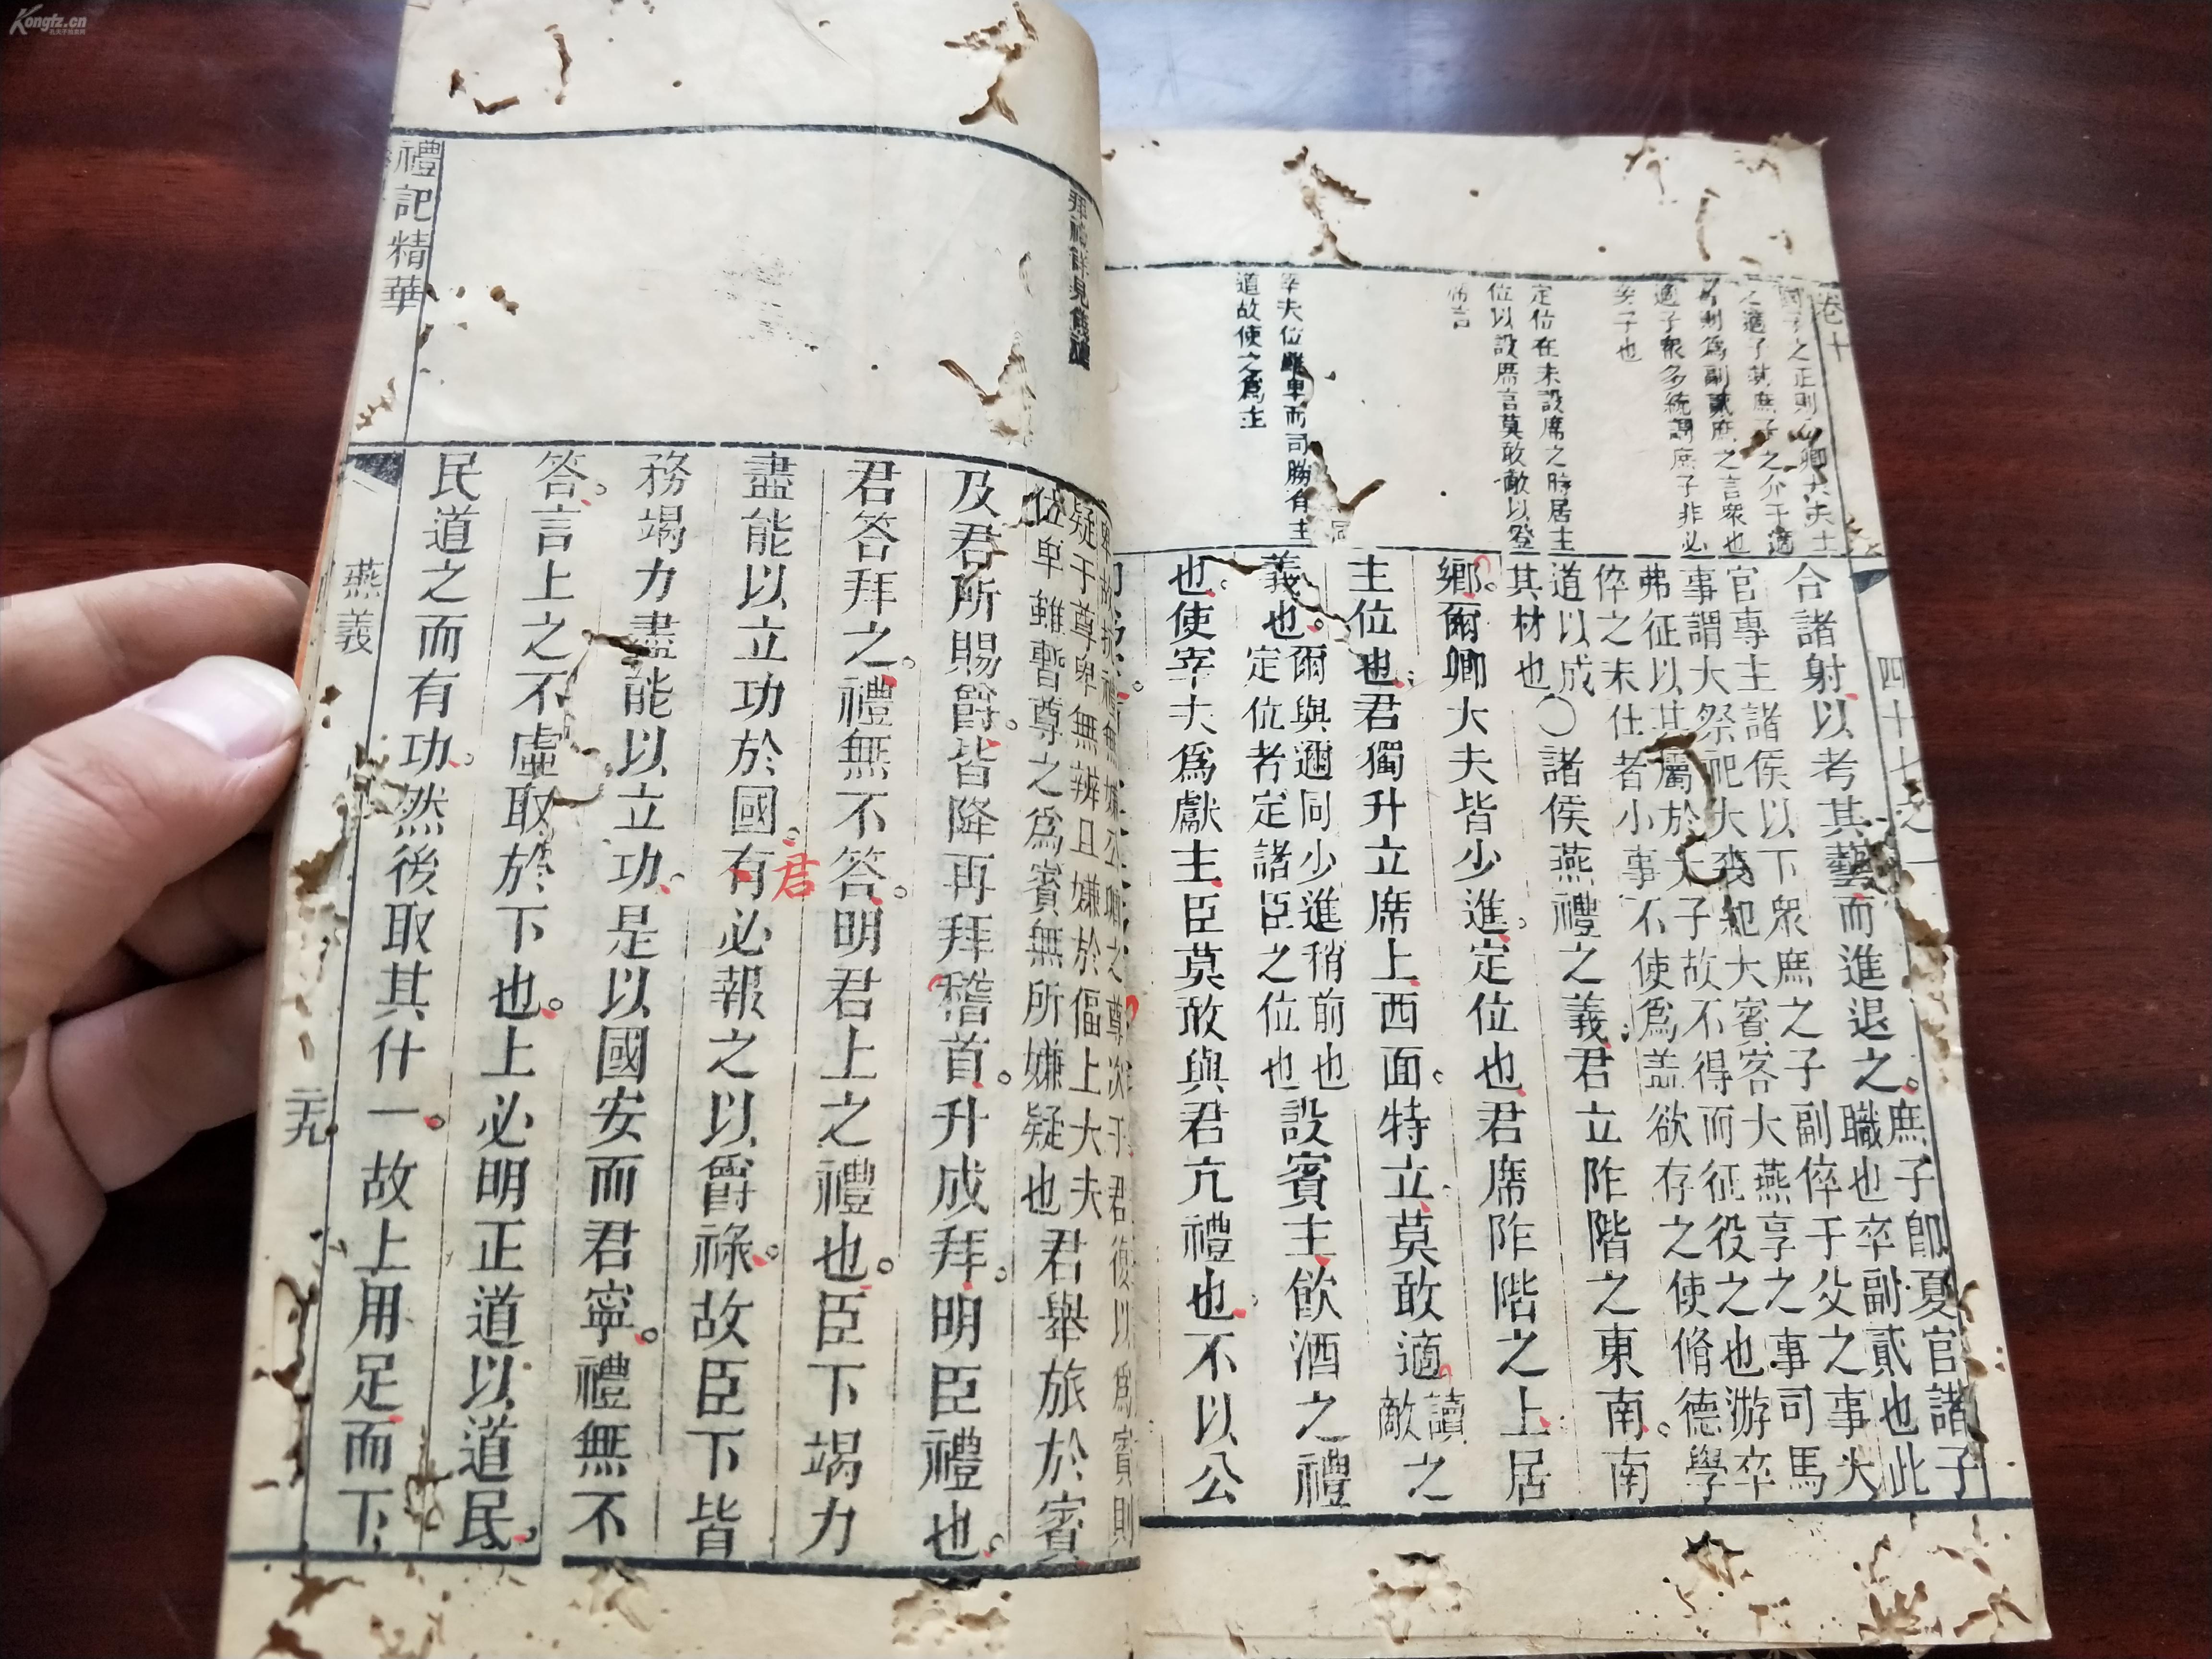 Kongfz.cn
卷十
四十七之一
國子之正則公卿大夫士
之適子也庶子之介于適
者則爲副貳庶之言衆也
適子衆多統謂庶子非必
妾子也
定位在未設席之時居主
位以設席言莫敢敵以登
席言
宰夫位雖卑而司膳有主
道故使之爲主
合諸射以考其藝而進退之。
庶子即夏官諸子
職也卒副貳也此
官專主諸侯以下衆庶之子副倅于父之事大
事謂大祭祀大喪紀大賓客大燕享之事司馬
弗征以其屬於太子故不得而征役之也游卒
倅之未仕者小事不使爲盖欲存之使脩德學
道以成
其材也
○諸侯燕禮之義君立阼階之東南。南
鄉。爾卿大夫皆少進。定位也君席阼階之上居
主位也君獨升立席上西面。特立莫敢適
讀
敵
之
義也。
爾與邇同少進稍前也
定位者定諸臣之位也
設賓主飲酒之禮
也使宰夫爲獻主臣莫敢與君亢禮也不以公
疑于尊卑無辨且嫌於偪上大夫
位卑雖暫尊之爲賓無所嫌疑也
君舉旅於賓
及君所賜爵。皆降再拜稽首。升成拜。明臣禮也。
君答拜之。禮無不答。明君上之禮也。臣下竭力
盡能以立功於國。
君
有必報之以爵祿。故臣下皆
務竭力盡能以立功。是以國安而君寧。禮無不
答。言上之不虛取於下也。上必明正道以道民。
民道之而有功。然後取其什一。故上用足而下
禮記精華
燕義
元